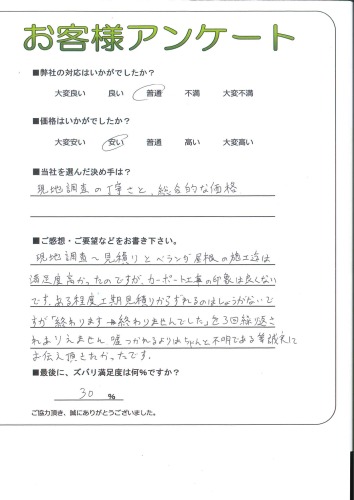 お客様アンケート
■弊社の対応はいかがでしたか?
大変良い 良い 普通 不満 大変不満
■価格はいかがでしたか?
大変安い 安い 普通 高い 大変高い
■当社を選んだ決め手は?
現地調査の丁寧さと、総合的な価格
■ご感想・ご要望などをお書き下さい。
現地調査〜見積りとベランダ屋根の施工迄は
満足度高かったのですが、カーポート工事の印象は良くない
です。ある程度工期見積りからずれるのはしょうがないで
すが「終わります→終わりませんでした」を3回繰り返さ
れありえません 嘘つかれるよりはちゃんと不明である等誠実に
お伝え頂きたかったです。
■最後に、ズバリ満足度は何%ですか?
30 %
ご協力頂き、誠にありがとうございました。